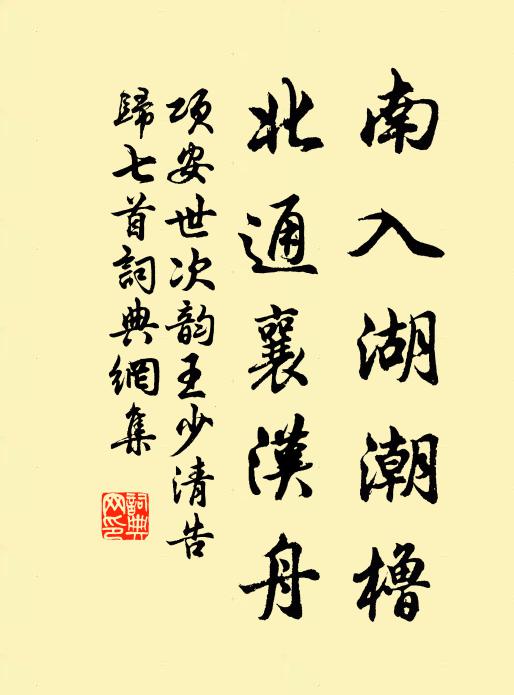 南入湖潮櫓
北通襄漢舟
項安世次韵王少清告
歸七首詞典網集
詞典
網印